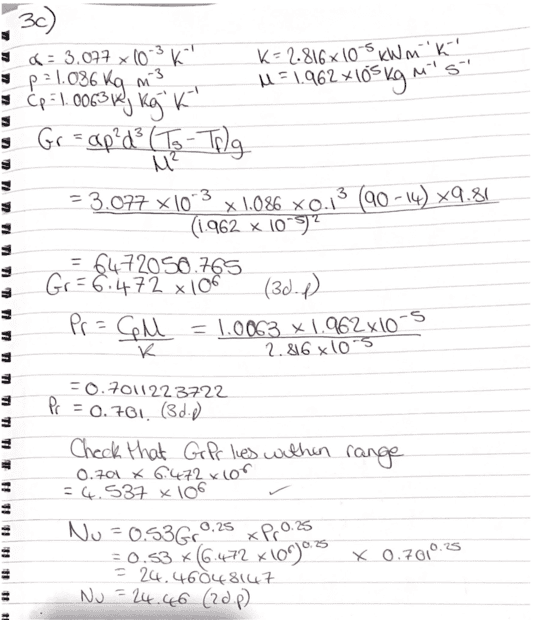 3c)
α = 3.077 × 10⁻³ K⁻¹ K = 2.816 × 10⁻⁵ kW m⁻¹ K⁻¹
ρ = 1.086 Kg m⁻³ μ = 1.962 × 10⁻⁵ kg m⁻¹ s⁻¹
Cp = 1.0063 kj kg⁻¹ K⁻¹
Gr = αρ²d³ (Ts - Tf)g
μ²
= 3.077 × 10⁻³ × 1.086 × 0.1³ (90 - 14) × 9.81
(1.962 × 10⁻⁵)²
= 6472050.765
Gr = 6.472 × 10⁶ (3d.p)
Pr = Cpμ = 1.0063 × 1.962 × 10⁻⁵
K 2.816 × 10⁻⁵
= 0.7011223722
Pr = 0.701. (3d.p)
Check that GrPr lies within range
0.701 × 6.472 × 10⁶
= 4.537 × 10⁶ ✓
Nu = 0.53Gr^0.25 × Pr^0.25
= 0.53 × (6.472 × 10⁶)^0.25 × 0.701^0.25
= 24.46048147
Nu = 24.46 (2d.p)